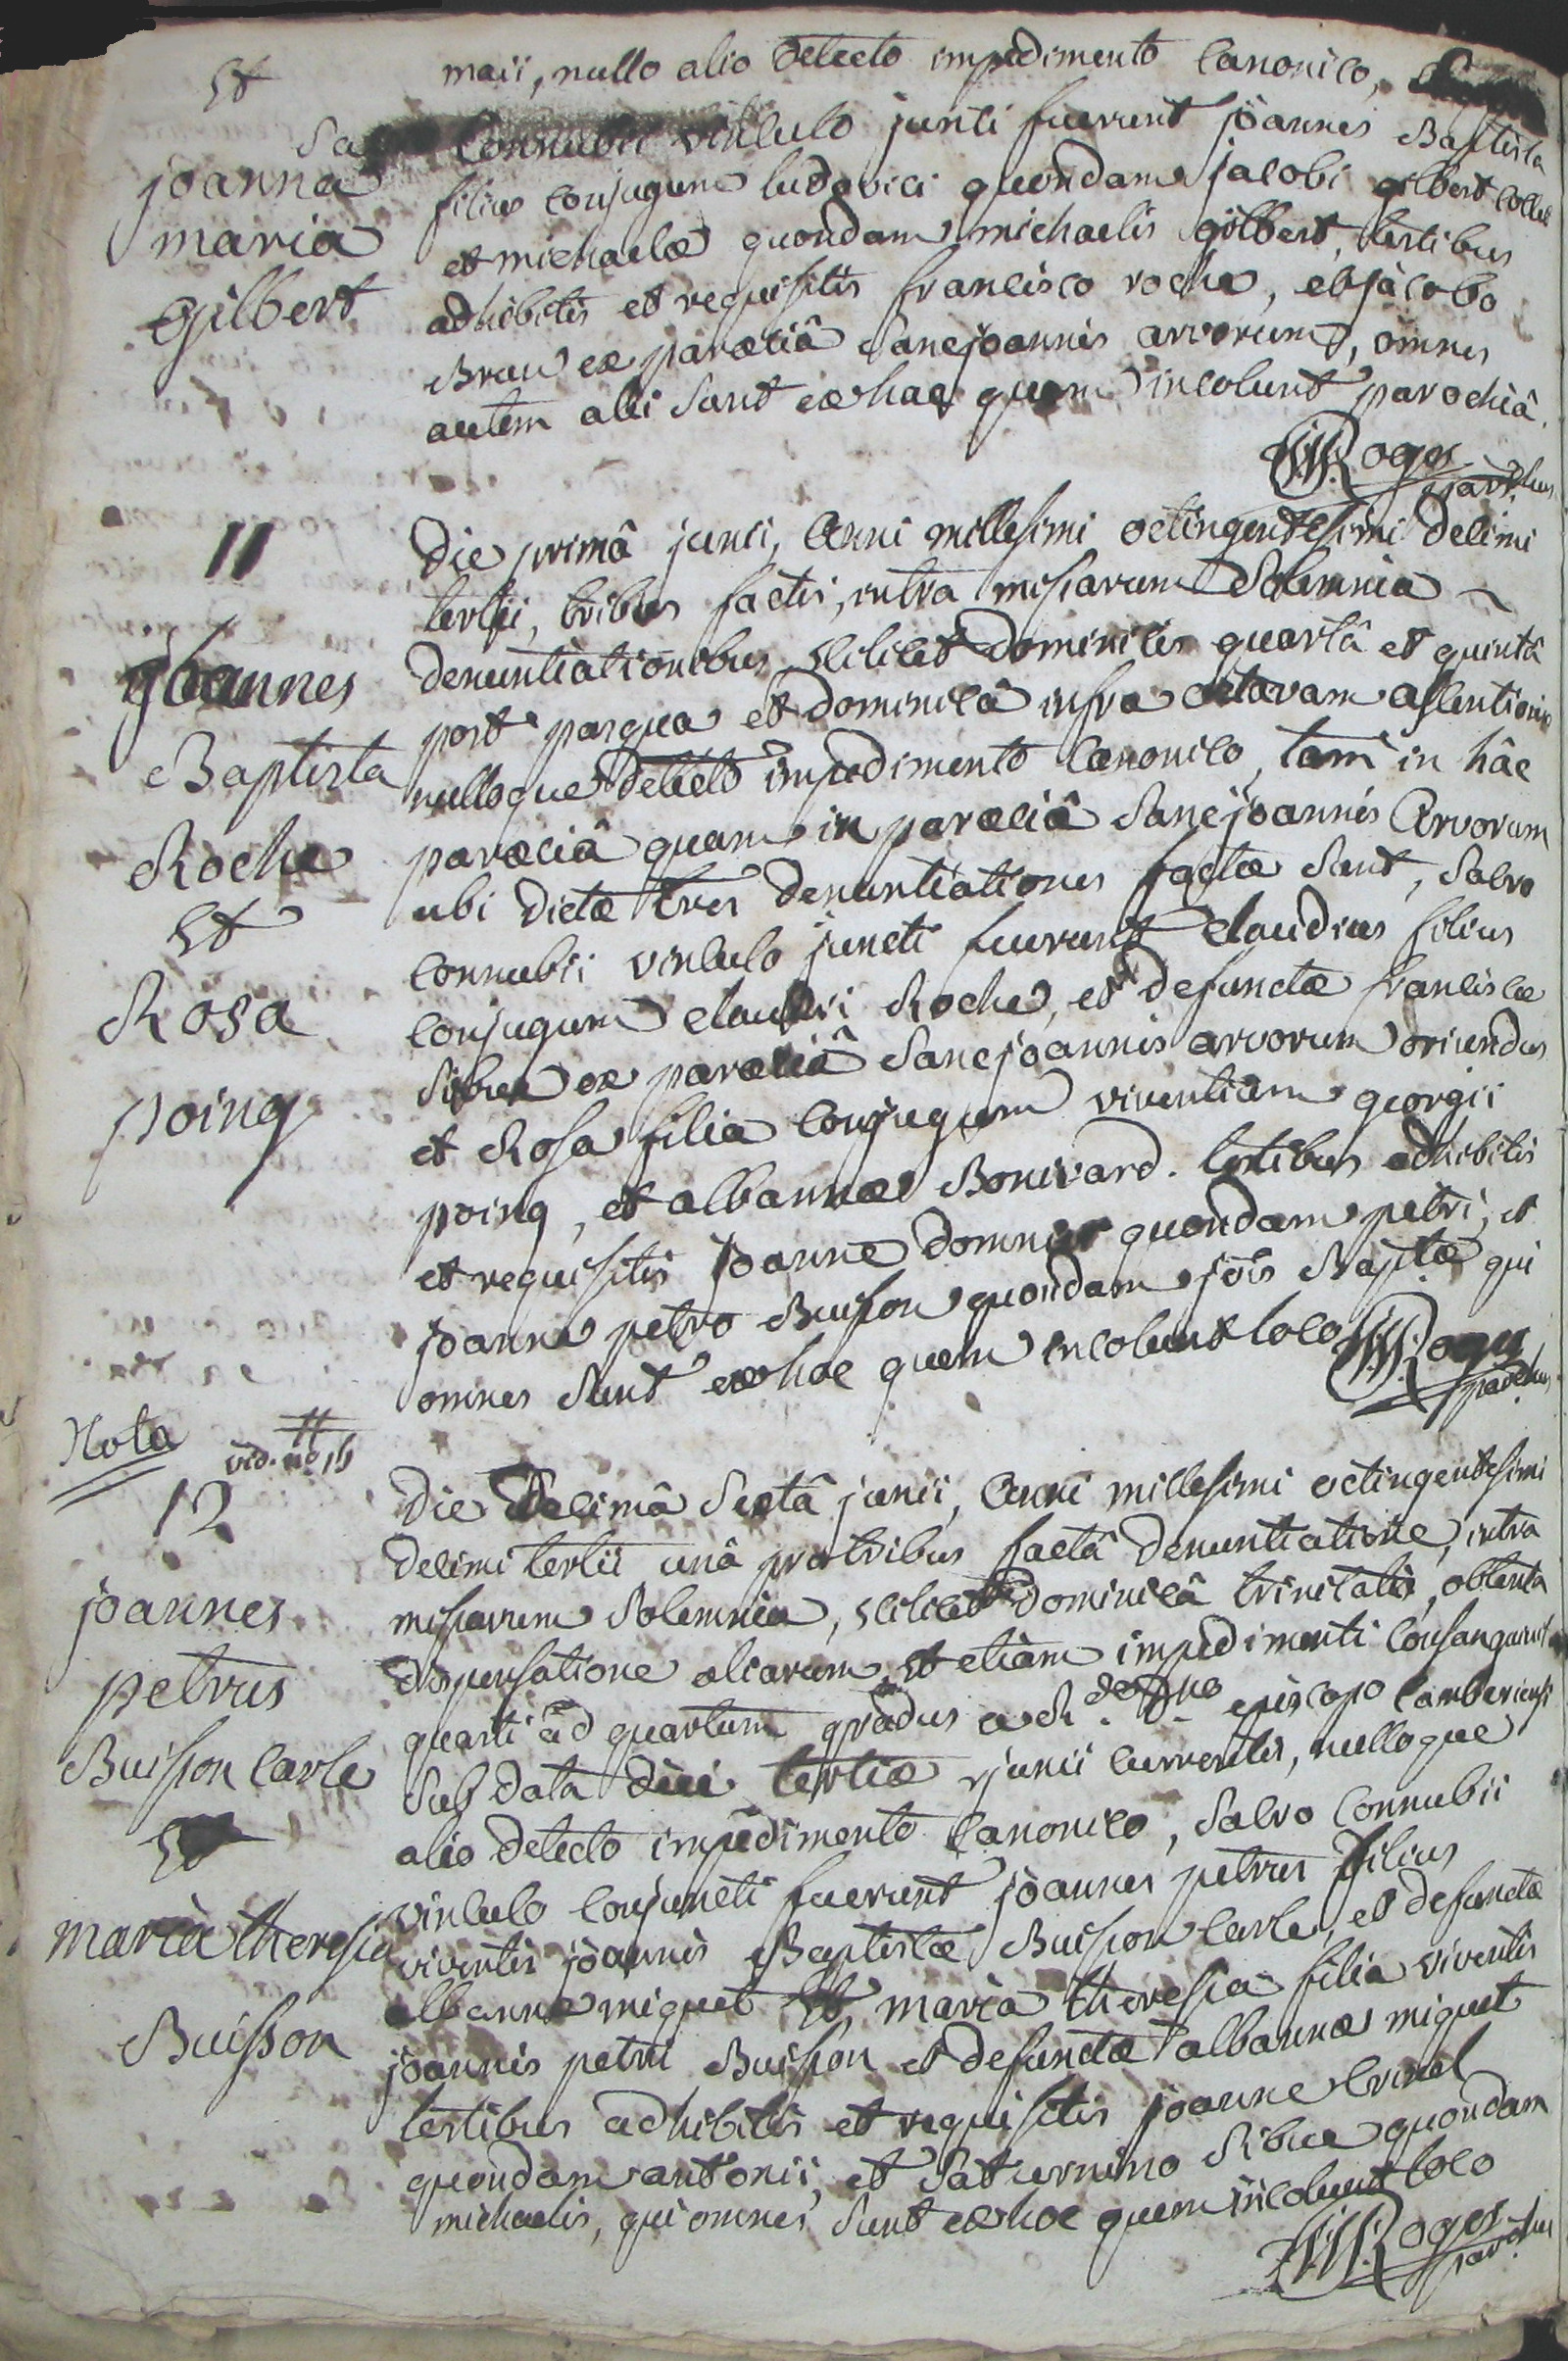 Et
joanna
maria
Gilbert
maii, nullo alio detecto impedimento Canonico,
Connubii vinculo juncti fuerunt joannes Baptista
filius conjugum ludovici quondam jacobi gilbert collet
et michaelæ quondam michaelis gilbert, testibus
adhibitis et requisitis francisco roche, et jacobo
Brun ex paræciâ Sancjoannis arvorum, omnes
autem alii Sunt ex hac quam incolunt parochiâ.
Roges
parochus
11
joannes
Baptista
Roche
Et
Rosa
poing
Die primâ junii, Anni millesimi octingentesimi decimi
tertii, tribus factis, intra missarum Solemnia
denuntiationibus, scilicet dominicis quartâ et quintâ
post pasqua et dominicâ infra octavam ascentionis
nulloque detecto impedimento Canonico, tam in hâc
paræciâ quam in paræciâ Sancjoannis Arvorum
ubi dictæ tres denuntiationes factæ Sunt, Salvo
connubii vinculo juncti fuerunt claudius filius
conjugum claudii Roche, et defunctæ franciscæ
Sibue ex paræciâ Sancjoannis arvorum oriundus
et Rosa filia conjugum viventium georgii
poing, et albannæ Bonivard. testibus adhibitis
et requisitis joanne domnier quondam petri, et
joanne petro Buisson quondam jois Baptæ qui
omnes Sunt ex hoc quem incolunt loco
Roges
parochus
Nota
vid. no 11
12
joannes
petrus
Buisson Carle
Et
maria theresia
Buisson
Die Decimâ Sextâ junii, Anni millesimi octingentesimi
decimi tertii unâ pro tribus factâ denuntiatione, intra
missarum Solemnia, scilicet dominicâ trinitatis, obtenta
dispensatione aliarum, Et etiam impedimenti consanguinit
quarti ad quartum gradus a R. D. episcopo Camberiensi
Sub data diei tertiæ junii currentis, nulloque
alio detecto impedimento Canonico, Salvo Connubii
vinculo conjuncti fuerunt joannes petrus filius
viventis joannis Baptistæ Buisson Carle, et defunctæ
albannæ miquet Et maria theresia filia viventis
joannis petri Buisson et defunctæ albannæ miquet
testibus adhibitis et requisitis joanne
quondam antonii, et Saturnino Sibue quondam
michaelis, qui omnes Sunt ex hoc quem incolunt loco
Roges
parochus